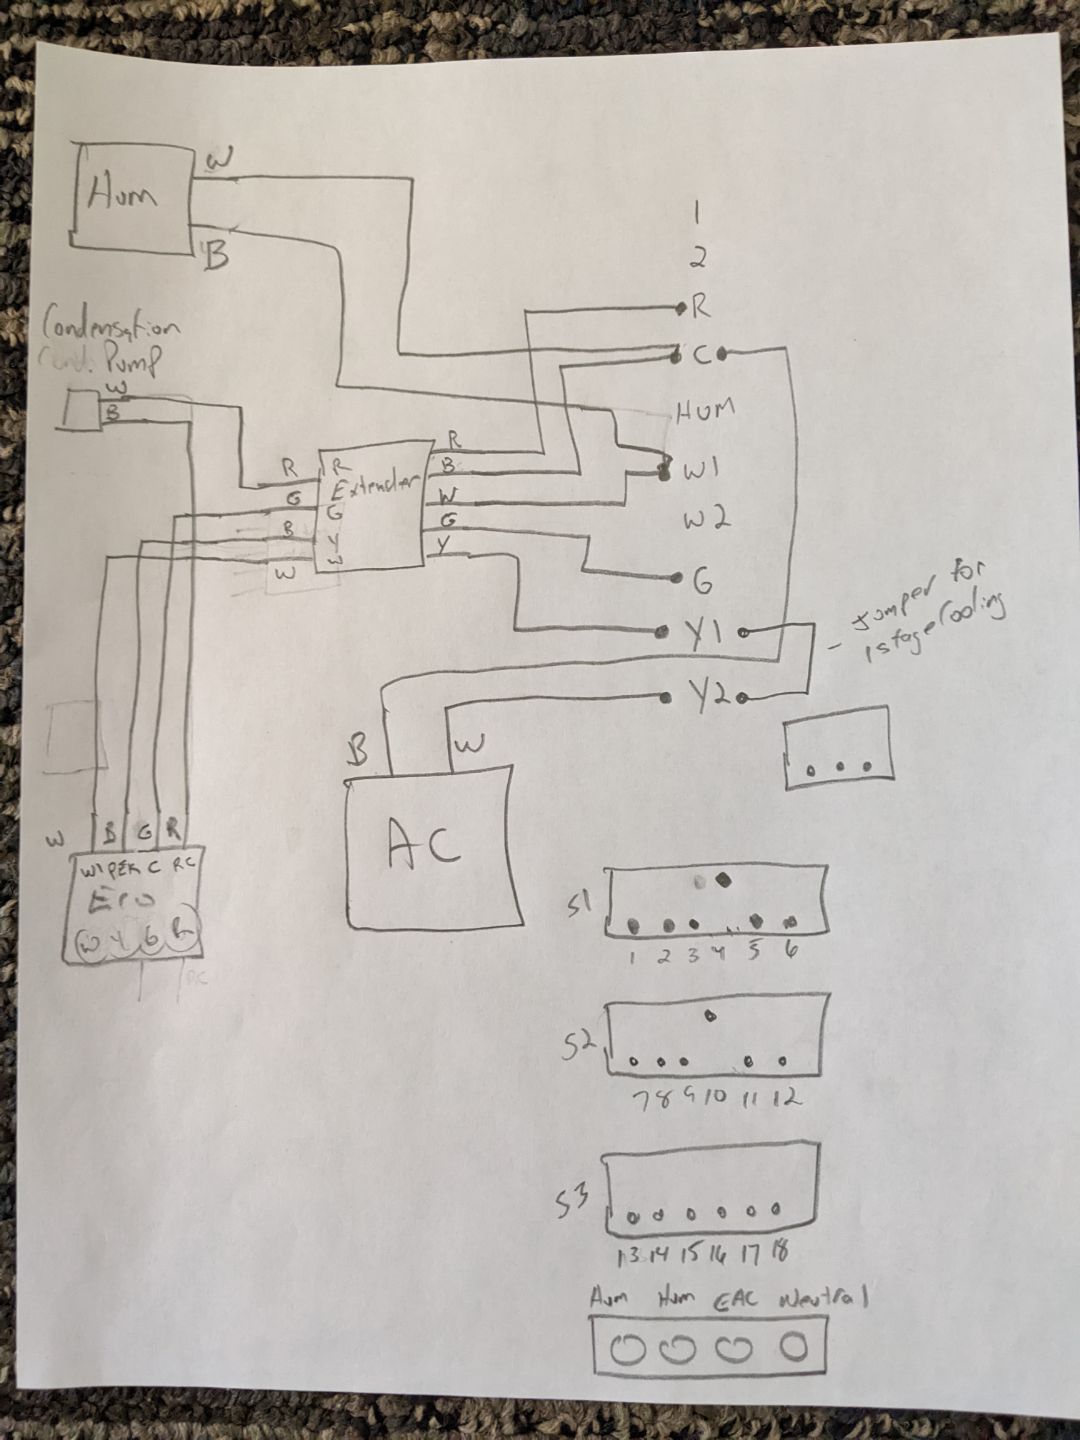 W
Hum
B
1
2
R
Condensation
Cond. Pump
W
B
C
HUM
R
R
R
Extender
B
W1
G
G
W
W2
B
Y
G
W
W
Y
G
Y1
Jumper for
1stage Cooling
Y2
B
W
AC
W
B
G
R
W1 PEK C RC
W Y G R
RC
S1
1 2 3 4 5 6
S2
7 8 9 10 11 12
S3
13 14 15 16 17 18
Hum Hum EAC Neutral